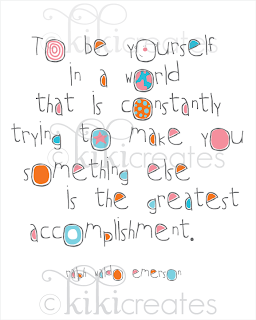 © kikicreates
To be yourself
in a world
that is constantly
trying to make you
© kikicreates
something else
is the greatest
accomplishment.
ralph waldo emerson
© kikicreates